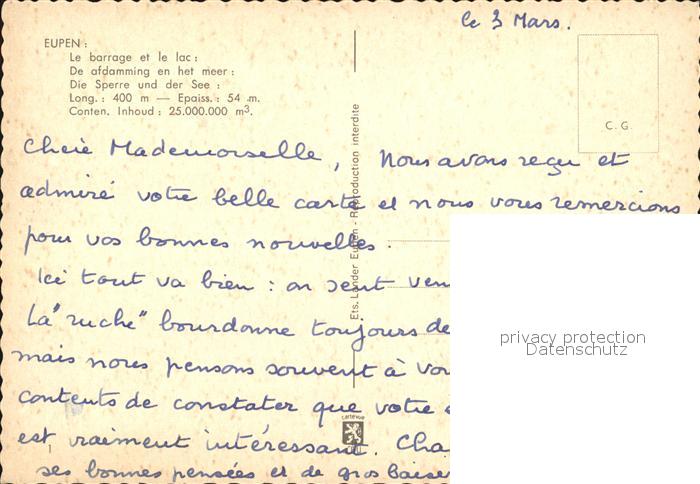 le 3 Mars.
EUPEN :
Le barrage et le lac :
De afdamming en het meer :
Die Sperre und der See :
Long. : 400 m — Epaiss. : 54 m.
Conten. Inhoud : 25.000.000 m³.
C. G.
Chère Mademoiselle, Nous avons reçu et
admiré votre belle carte et nous vous remercions
pour vos bonnes nouvelles.
Ici tout va bien : on sent
La "ruche" bourdonne toujours de
mais nous pensons souvent à
contents de constater que votre
est vraiment intéressant.
ses bonnes pensées et de gros
Ets. Lander Eupen - Reproduction interdite
cartevue
privacy protection
Datenschutz